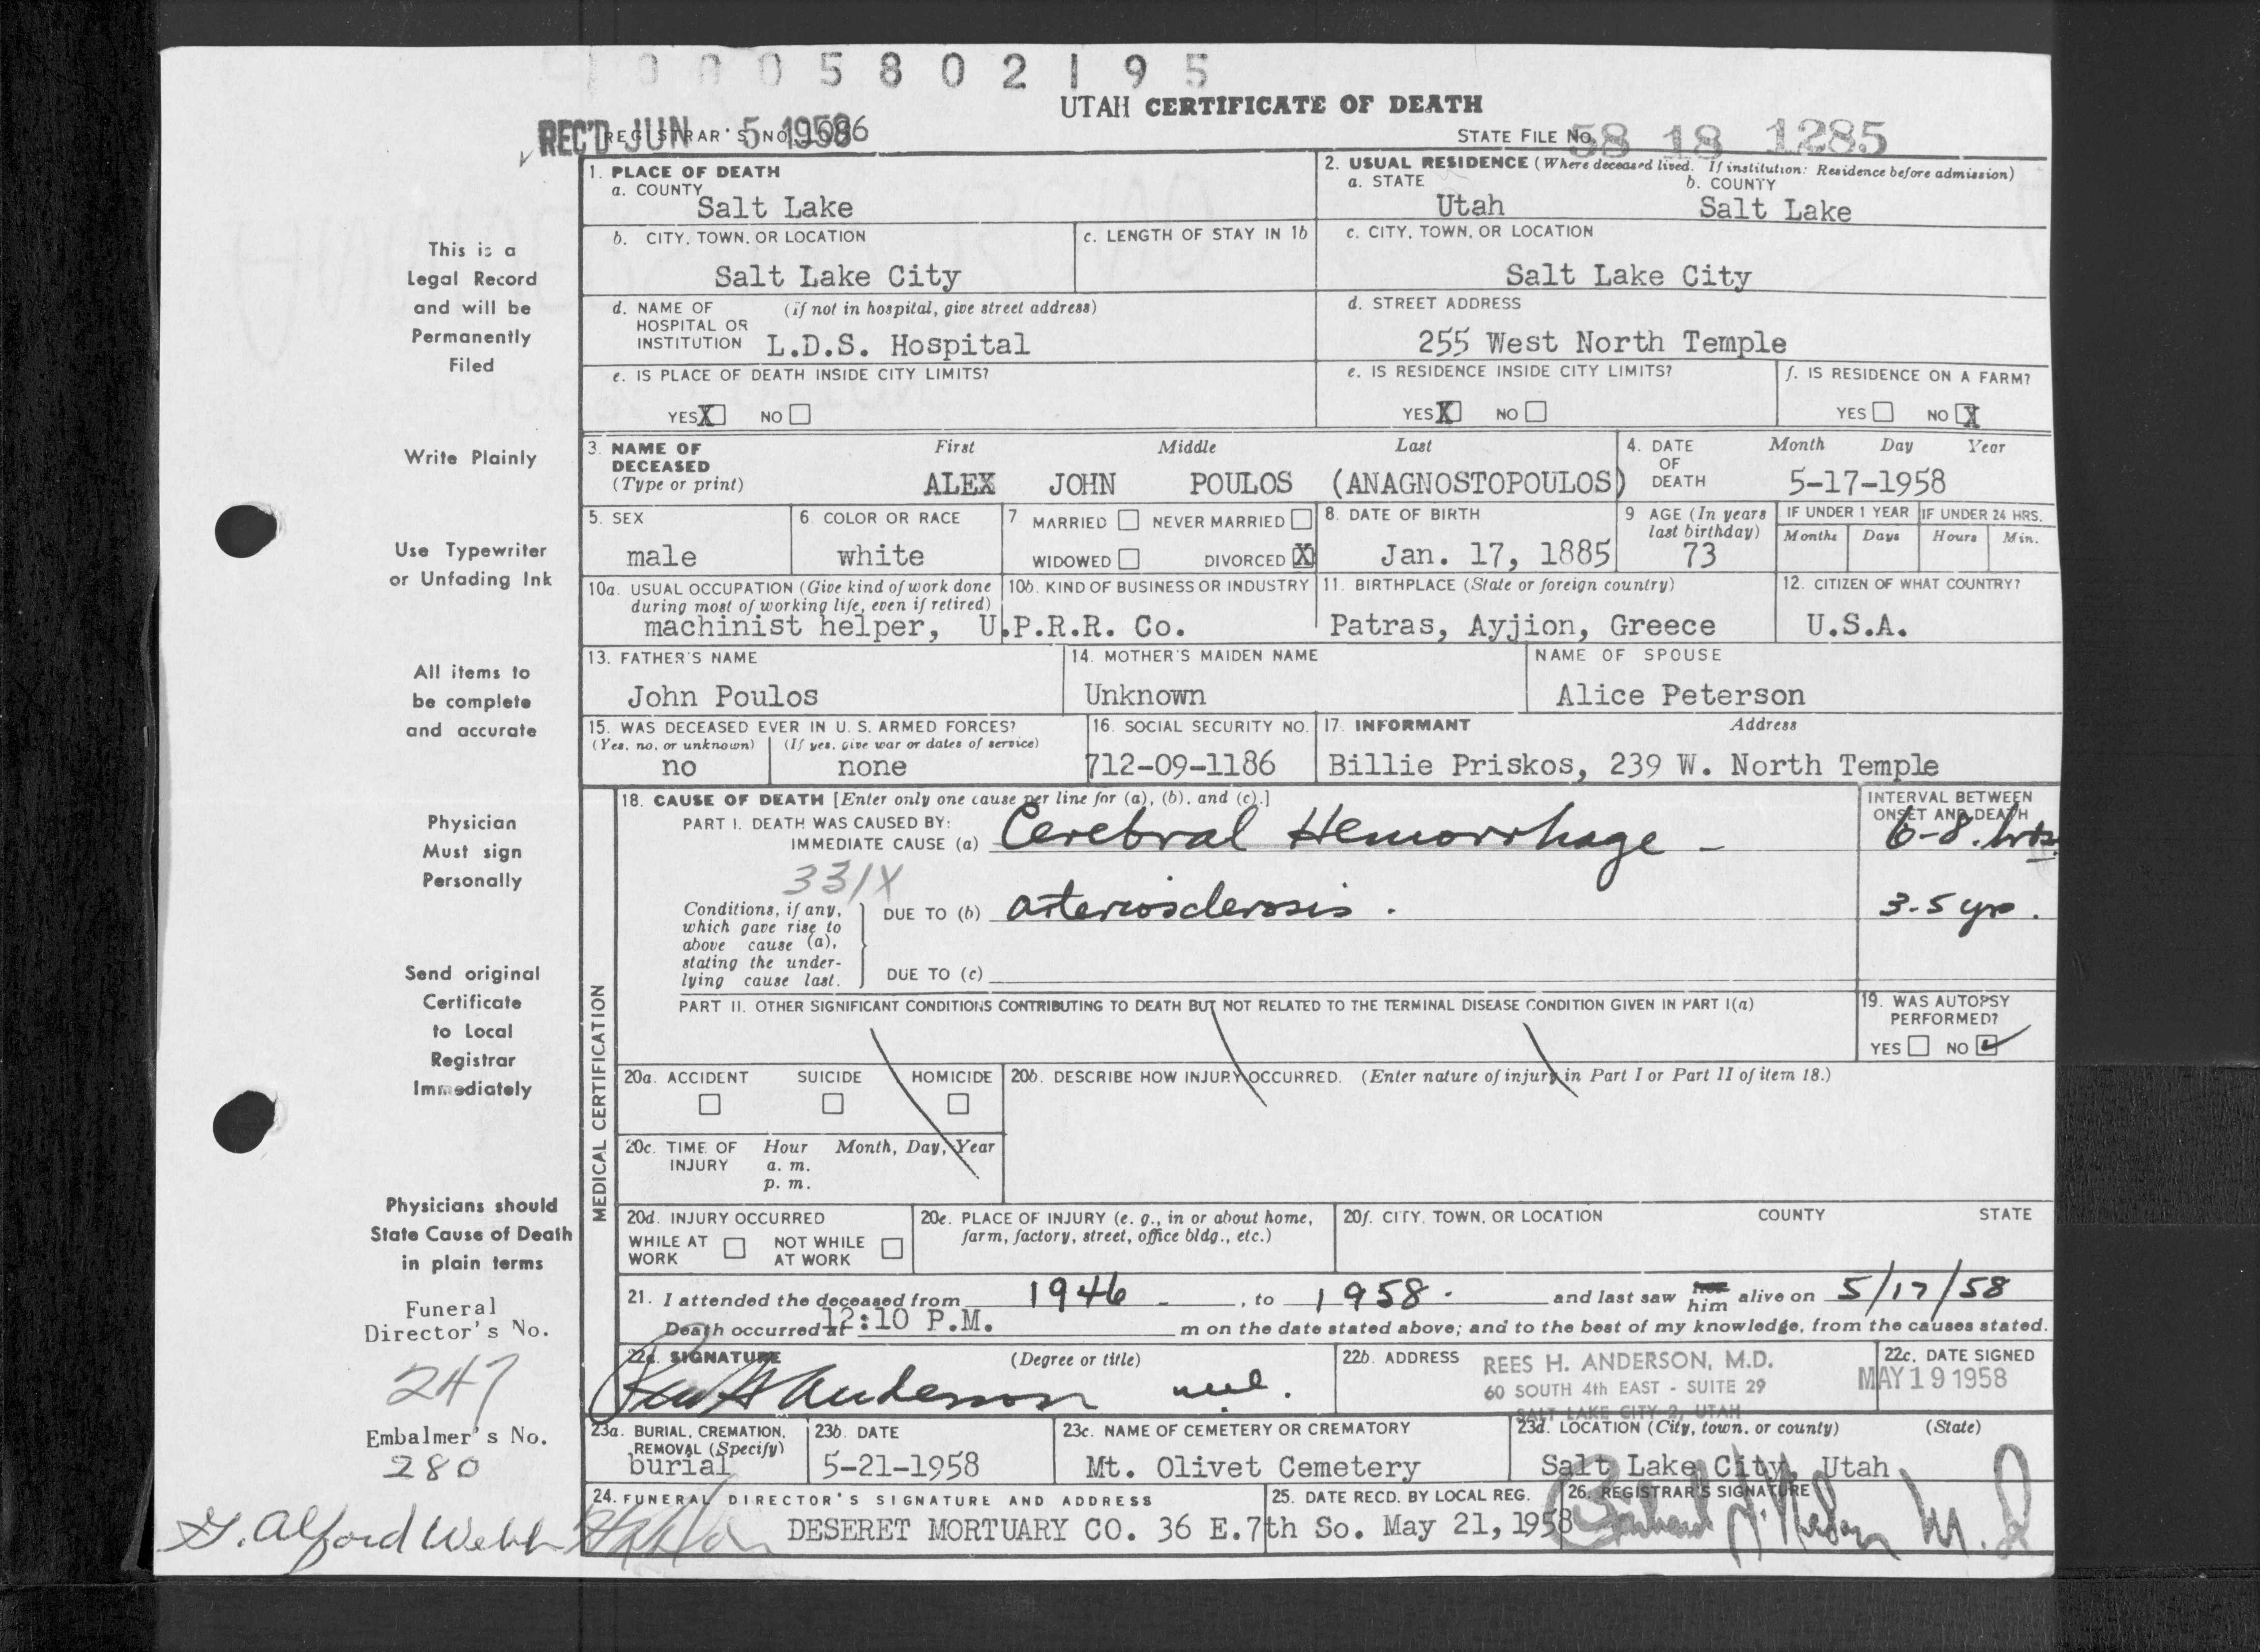 0005802195
UTAH CERTIFICATE OF DEATH
REC'D JUN 5 1958
REGISTRAR'S NO.
STATE FILE No. 58 18 1285
1. PLACE OF DEATH
a. COUNTY
Salt Lake
2. USUAL RESIDENCE (Where deceased lived. If institution: Residence before admission)
a. STATE b. COUNTY
Utah Salt Lake
b. CITY, TOWN, OR LOCATION
Salt Lake City
c. LENGTH OF STAY IN 1b
c. CITY, TOWN, OR LOCATION
Salt Lake City
d. NAME OF HOSPITAL OR INSTITUTION (If not in hospital, give street address)
L.D.S. Hospital
d. STREET ADDRESS
255 West North Temple
e. IS PLACE OF DEATH INSIDE CITY LIMITS?
YES X NO
e. IS RESIDENCE INSIDE CITY LIMITS?
YES X NO
f. IS RESIDENCE ON A FARM?
YES NO X
3. NAME OF DECEASED (Type or print)
First Middle Last
ALEX JOHN POULOS (ANAGNOSTOPOULOS)
4. DATE OF DEATH
Month Day Year
5-17-1958
5. SEX
male
6. COLOR OR RACE
white
7 MARRIED NEVER MARRIED
WIDOWED DIVORCED X
8. DATE OF BIRTH
Jan. 17, 1885
9 AGE (In years last birthday)
73
IF UNDER 1 YEAR
Months Days
IF UNDER 24 HRS.
Hours Min.
10a. USUAL OCCUPATION (Give kind of work done during most of working life, even if retired)
10b. KIND OF BUSINESS OR INDUSTRY
machinist helper, U.P.R.R. Co.
11. BIRTHPLACE (State or foreign country)
Patras, Ayjion, Greece
12. CITIZEN OF WHAT COUNTRY?
U.S.A.
13. FATHER'S NAME
John Poulos
14. MOTHER'S MAIDEN NAME
Unknown
NAME OF SPOUSE
Alice Peterson
15. WAS DECEASED EVER IN U. S. ARMED FORCES?
(Yes, no, or unknown) (If yes, give war or dates of service)
no none
16. SOCIAL SECURITY NO.
712-09-1186
17. INFORMANT Address
Billie Priskos, 239 W. North Temple
MEDICAL CERTIFICATION
18. CAUSE OF DEATH [Enter only one cause per line for (a), (b), and (c).]
PART I. DEATH WAS CAUSED BY:
IMMEDIATE CAUSE (a) Cerebral Hemorrhage -
INTERVAL BETWEEN ONSET AND DEATH
6-8. hrs.
331X
Conditions, if any, which gave rise to above cause (a), stating the underlying cause last.
DUE TO (b) arteriosclerosis .
3-5 yrs.
DUE TO (c)
PART II. OTHER SIGNIFICANT CONDITIONS CONTRIBUTING TO DEATH BUT NOT RELATED TO THE TERMINAL DISEASE CONDITION GIVEN IN PART I(a)
19. WAS AUTOPSY PERFORMED?
YES NO ✓
20a. ACCIDENT SUICIDE HOMICIDE
20b. DESCRIBE HOW INJURY OCCURRED. (Enter nature of injury in Part I or Part II of item 18.)
20c. TIME OF INJURY
Hour Month, Day, Year
a. m.
p. m.
20d. INJURY OCCURRED
WHILE AT WORK NOT WHILE AT WORK
20e. PLACE OF INJURY (e. g., in or about home, farm, factory, street, office bldg., etc.)
20f. CITY, TOWN, OR LOCATION COUNTY STATE
21. I attended the deceased from 1946 - , to 1958. and last saw her him alive on 5/17/58
Death occurred at 12:10 P.M. m on the date stated above; and to the best of my knowledge, from the causes stated.
22a. SIGNATURE (Degree or title)
Rees H Anderson M.D.
22b. ADDRESS
REES H. ANDERSON, M.D.
60 SOUTH 4th EAST - SUITE 29
SALT LAKE CITY 2, UTAH
22c. DATE SIGNED
MAY 19 1958
23a. BURIAL, CREMATION, REMOVAL (Specify)
burial
23b. DATE
5-21-1958
23c. NAME OF CEMETERY OR CREMATORY
Mt. Olivet Cemetery
23d. LOCATION (City, town, or county) (State)
Salt Lake City, Utah
24. FUNERAL DIRECTOR'S SIGNATURE AND ADDRESS
DESERET MORTUARY CO. 36 E.7th So.
25. DATE RECD. BY LOCAL REG.
May 21, 1958
26. REGISTRAR'S SIGNATURE
This is a
Legal Record
and will be
Permanently
Filed
Write Plainly
Use Typewriter
or Unfading Ink
All items to
be complete
and accurate
Physician
Must sign
Personally
Send original
Certificate
to Local
Registrar
Immediately
Physicians should
State Cause of Death
in plain terms
Funeral
Director's No.
247
Embalmer's No.
280
G. Alford Webb